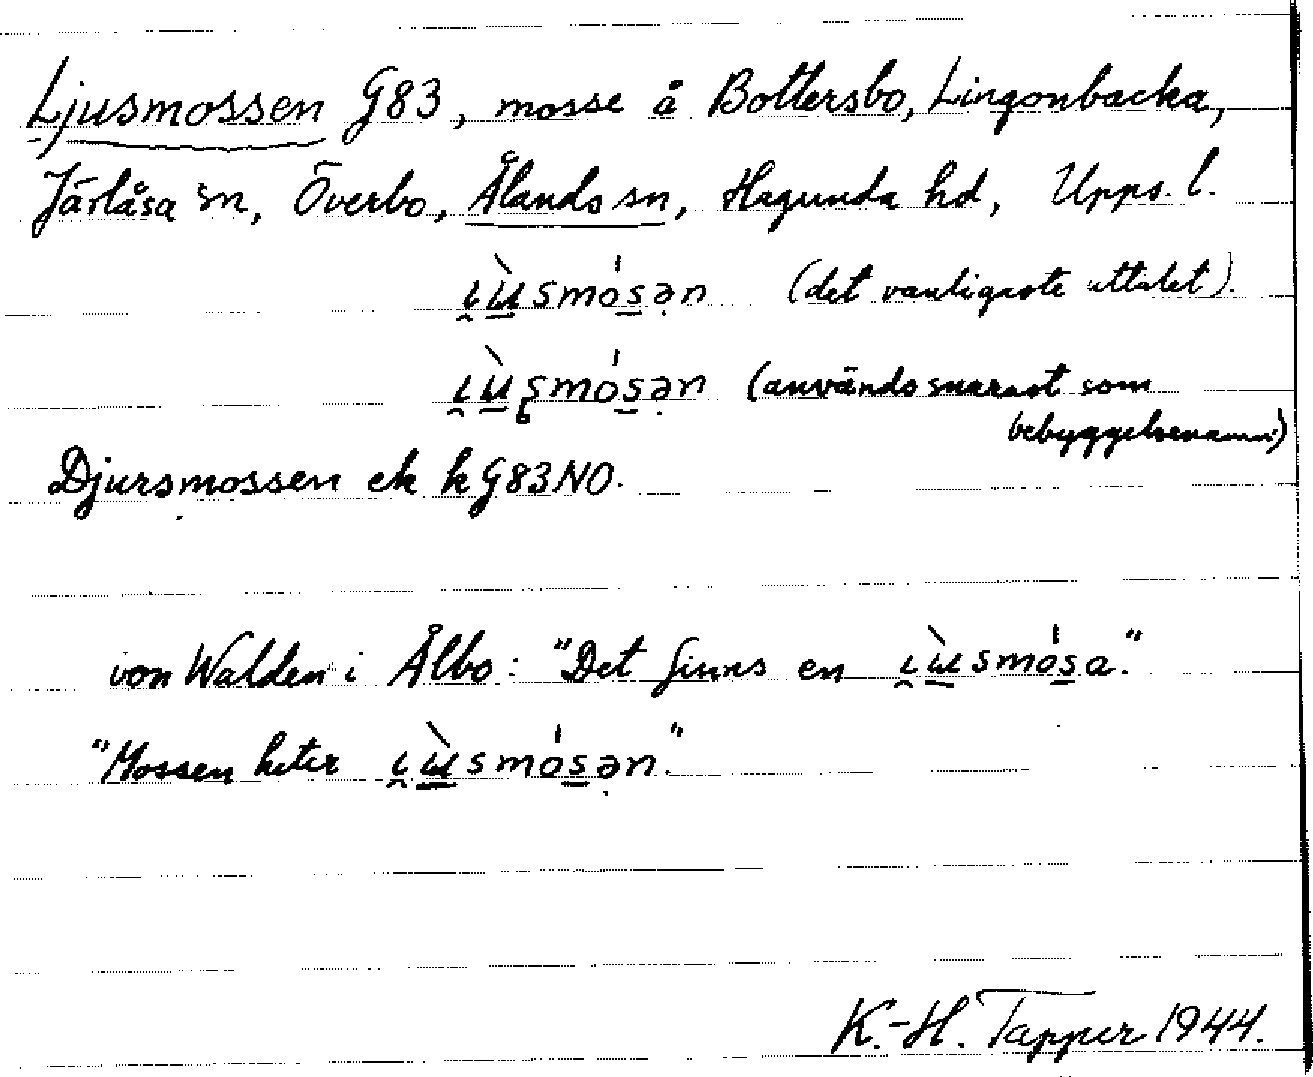 Ljusmossen G83, mosse å Bottersbo, Lingonbacka,
Järlåsa sn, Överbo, Ålands sn, Hagunda hd, Upps. l.
ɩ̯ùsmósən (det vanligaste uttalet).
ɩ̯ùʂmósən (används snarast som
bebyggelsenamn)
Djursmossen ek k G83NO.
von Walden i Ålbo: "Det finns en ɩ̯ùsmósa."
"Mossen heter ɩ̯ùsmósən."
K.-H. Tapper 1944.